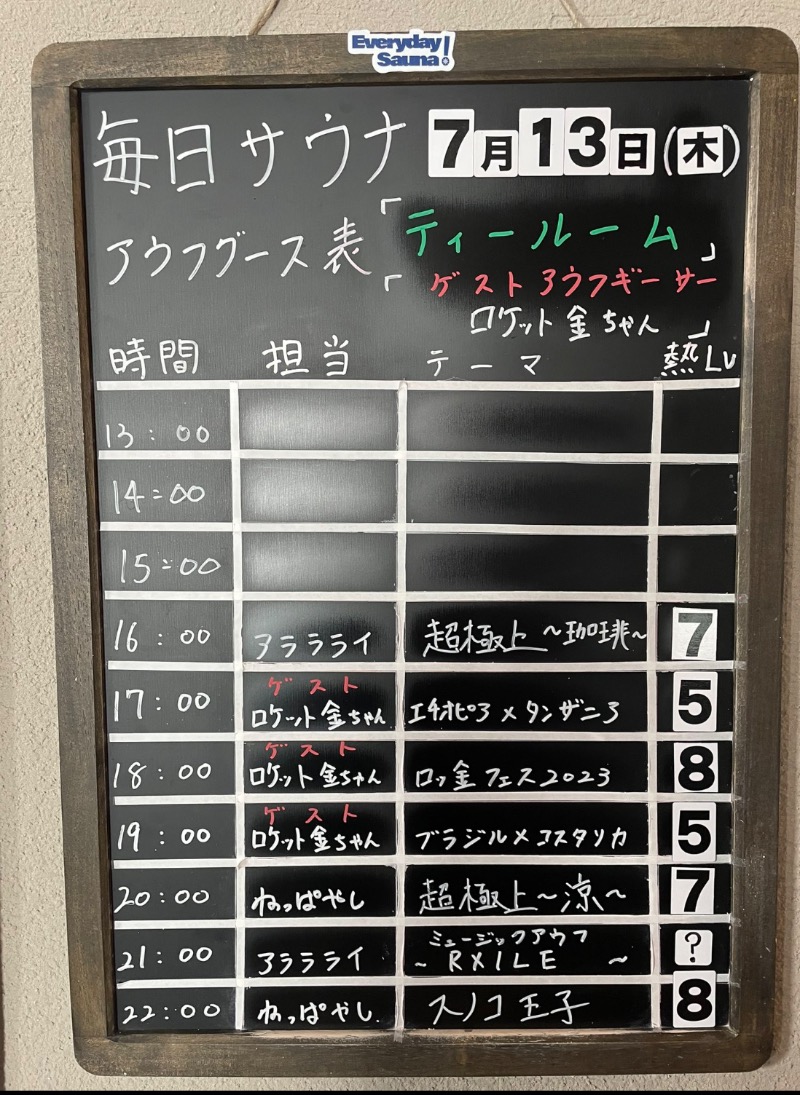 Everyday
Sauna!
毎日サウナ 7月13日(木)
アウフグース表「ティールーム」
「ゲストアウフギーサー
ロケット金ちゃん」
時間 担当 テーマ 熱Lv
13:00
14:00
15:00
16:00 アラララィ 超極上~珈琲~ 7
17:00 ゲスト
ロケット金ちゃん エチオピア×タンザニア 5
18:00 ゲスト
ロケット金ちゃん ロッ金フェス2023 8
19:00 ゲスト
ロケット金ちゃん ブラジル×コスタリカ 5
20:00 ねっぱやし 超極上~涼~ 7
21:00 アラララィ ミュージックアウフ
~RXILE ~ ?
22:00 ねっぱやし. スノコ王子 8